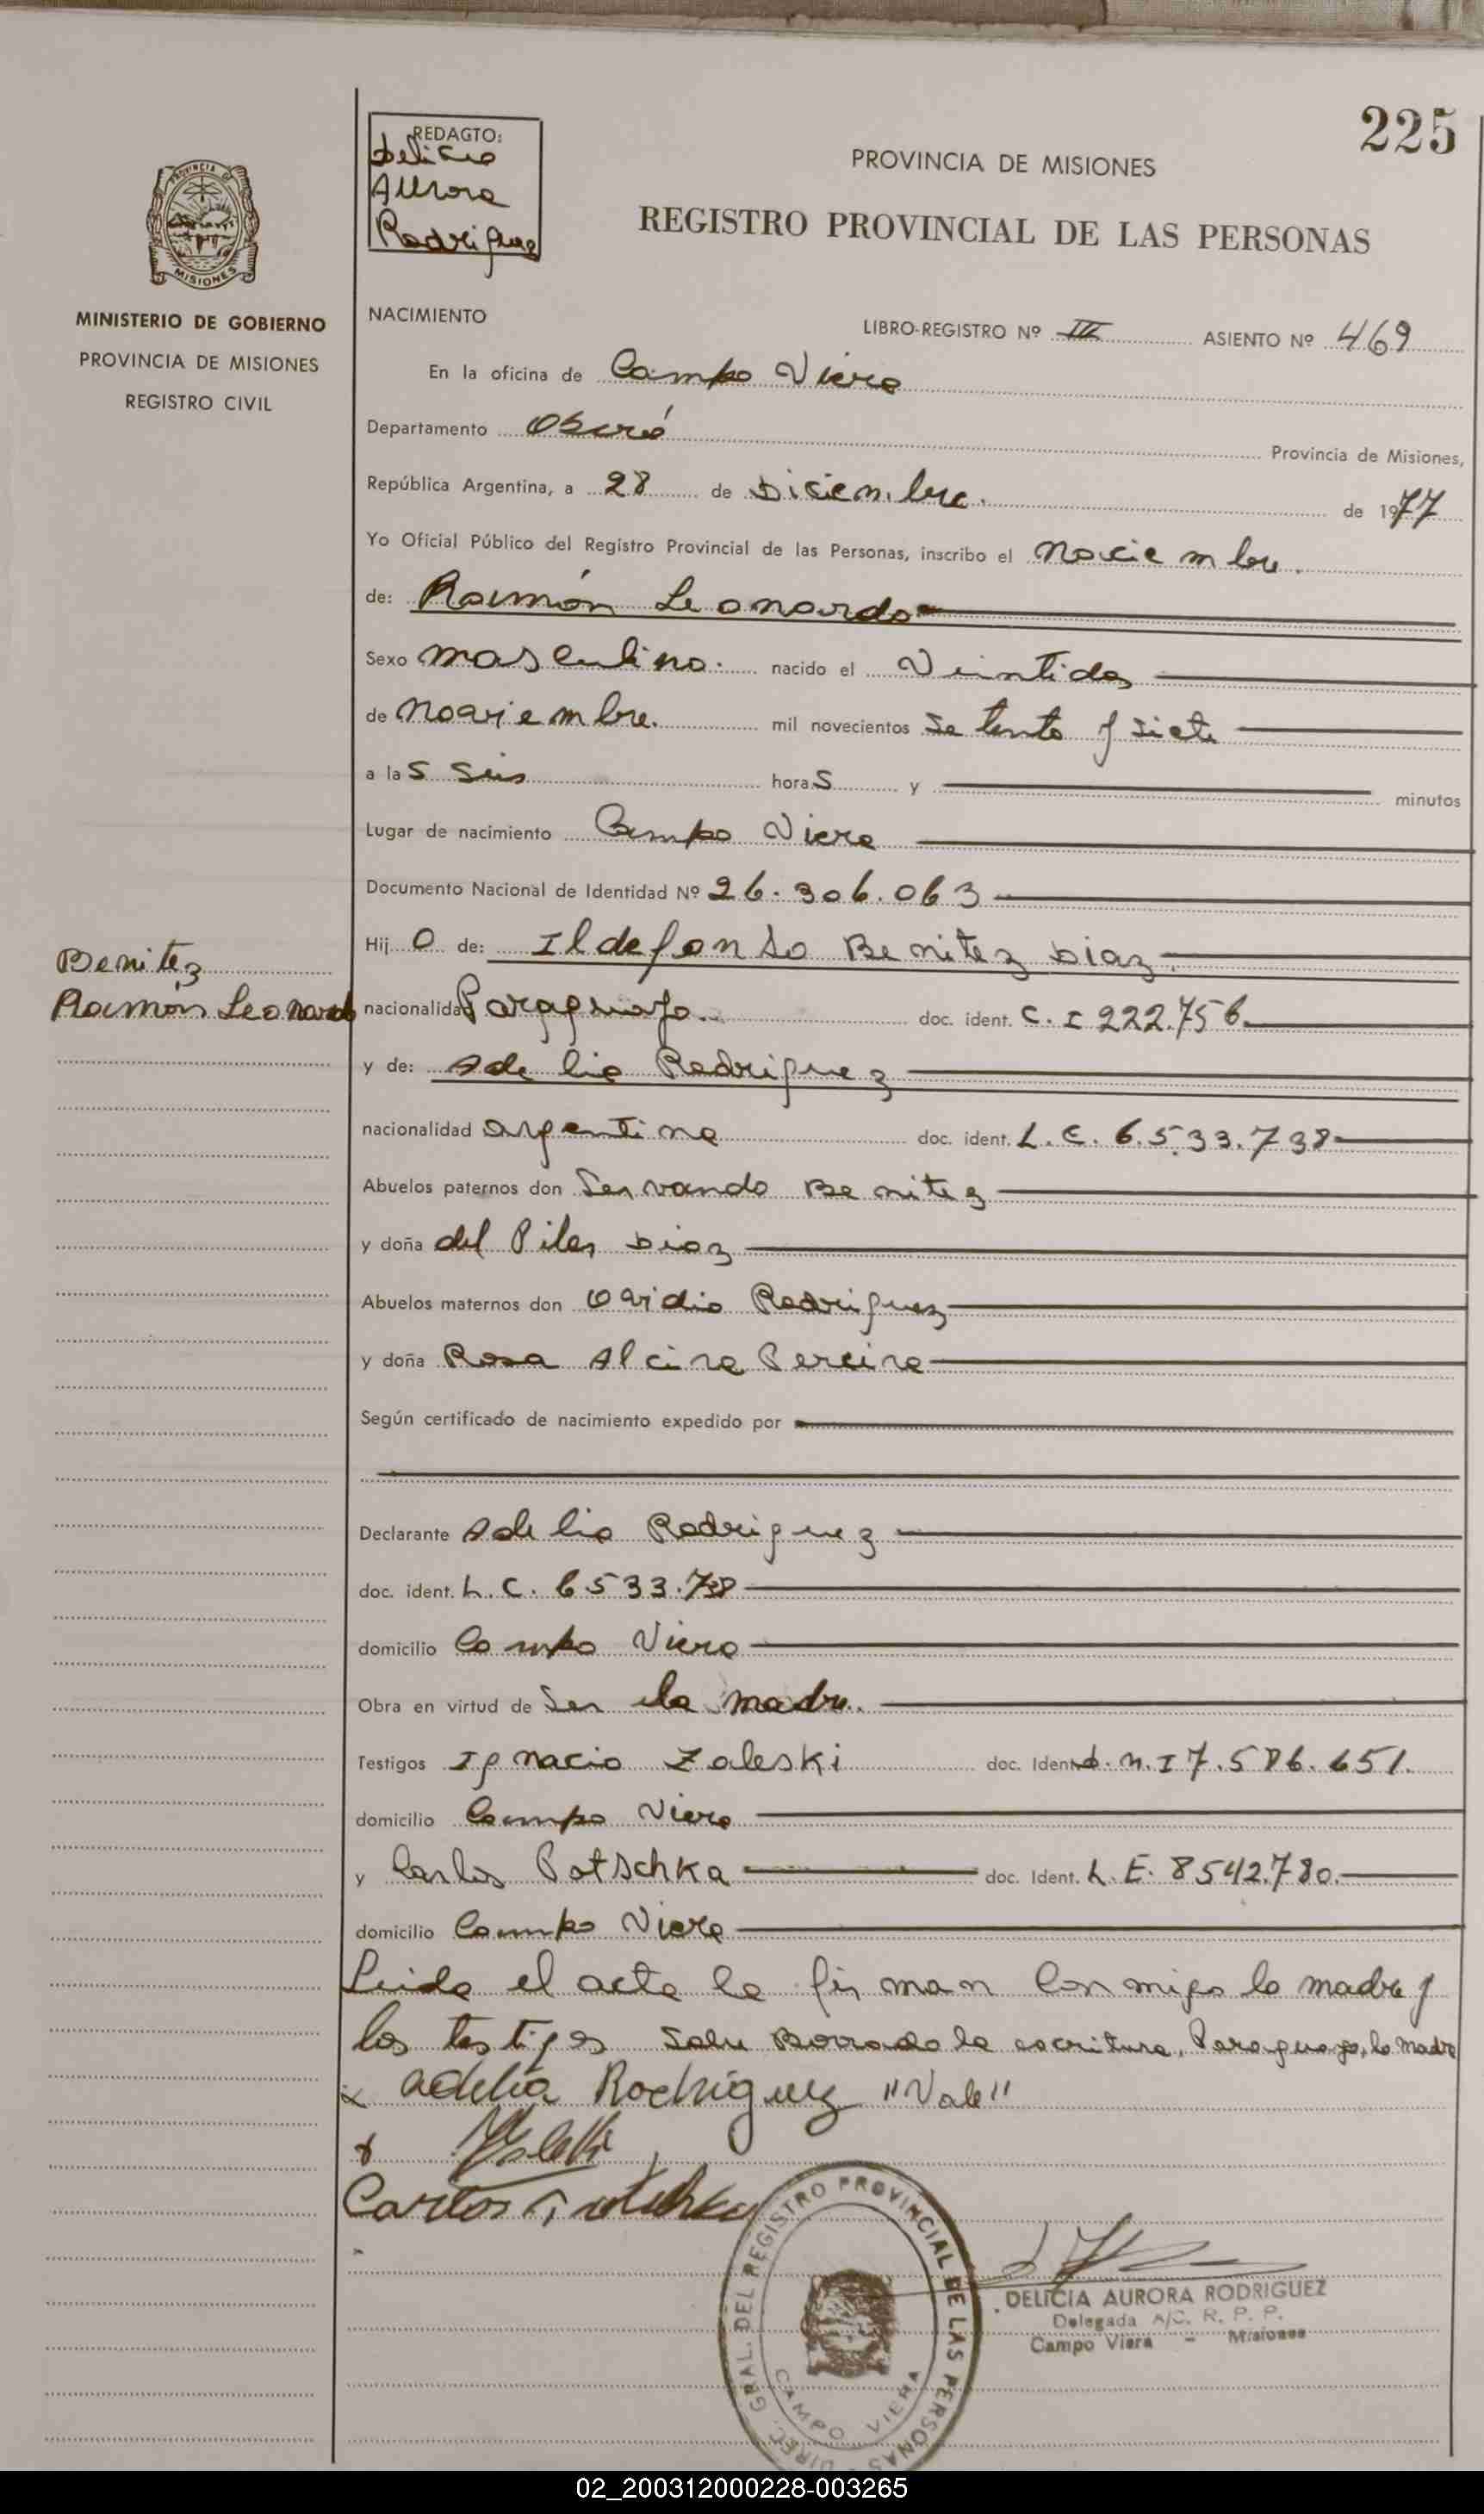 225
REDACTO:
Delicia
Aurora
Rodriguez
PROVINCIA DE MISIONES
REGISTRO PROVINCIAL DE LAS PERSONAS
PROVINCIA DE
MISIONES
MINISTERIO DE GOBIERNO
PROVINCIA DE MISIONES
REGISTRO CIVIL
NACIMIENTO
LIBRO-REGISTRO Nº III ASIENTO Nº 469
En la oficina de Campo Viera
Departamento Oberá Provincia de Misiones,
República Argentina, a 28 de Diciembre. de 1977
Yo Oficial Público del Registro Provincial de las Personas, inscribo el
de: Ramón Leonardo
Sexo masculino. nacido el Veintidos
de noviembre. mil novecientos setenta y siete
a las seis horas y minutos
Lugar de nacimiento Campo Viera
Documento Nacional de Identidad Nº 26.306.063
Hijo de: Ildefonso Benitez Diaz.
Benitez
Ramón Leonardo
nacionalidad Paraguaya. doc. ident. C. I 222.756
y de: Adelia Rodriguez
nacionalidad argentina doc. ident. L. C. 6.533.738
Abuelos paternos don Servando Benitez
y doña del Pilar Diaz
Abuelos maternos don Ovidio Rodriguez
y doña Rosa Alcira Pereira
Según certificado de nacimiento expedido por
Declarante Adelia Rodriguez
doc. ident. L. C. 6533.738
domicilio Campo Viera
Obra en virtud de Ser la madre.
Testigos Ignacio Zaleski doc. Ident. d. n. I 7.586.651.
domicilio Campo Viera
y Carlos Potschka doc. Ident. L. E. 8542.780.
domicilio Campo Viera
Leida el acta la firman Conmigo la madre y
los testigos Sobre Borrado la escritura, Paraguaya, la madre
x adelia Rodriguez "Vale"
x
Carlos Potschka
DIREC. GRAL. DEL REGISTRO PROVINCIAL DE LAS PERSONAS
CAMPO VIERA
DELICIA AURORA RODRIGUEZ
Delegada A/C. R. P. P.
Campo Viera - Misiones
02_200312000228-003265